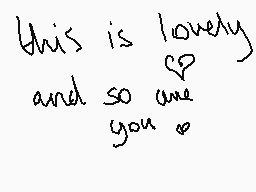 this is lovely
♡
and so are
you ♡